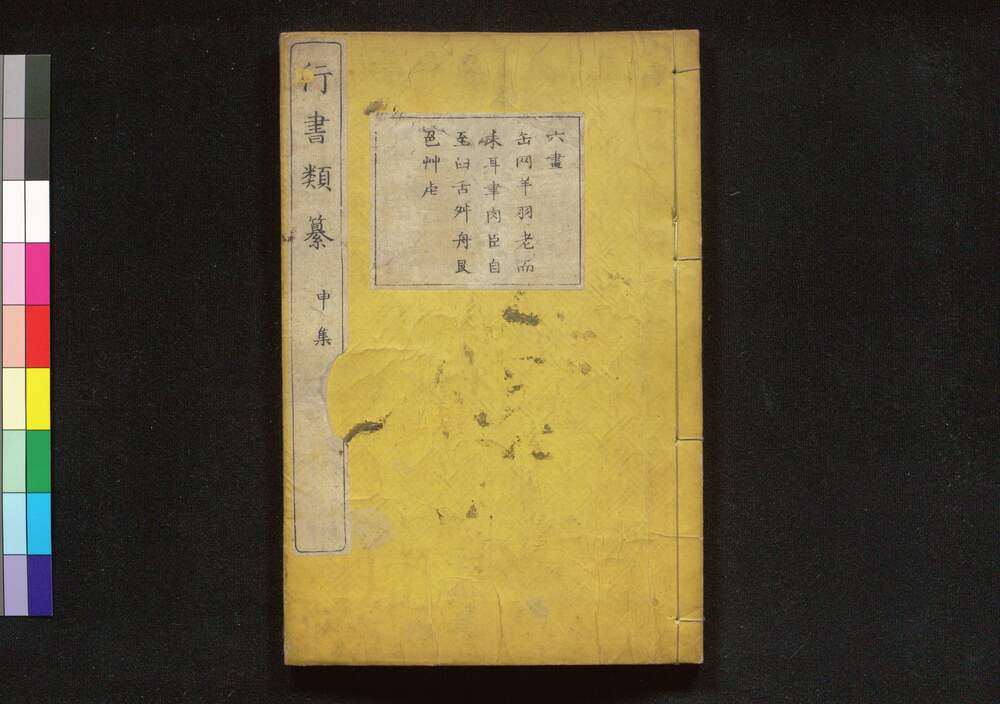 六畫
缶网羊羽老而
耒耳聿肉臣自
至臼舌舛舟艮
色艸虍
行書類纂 申集